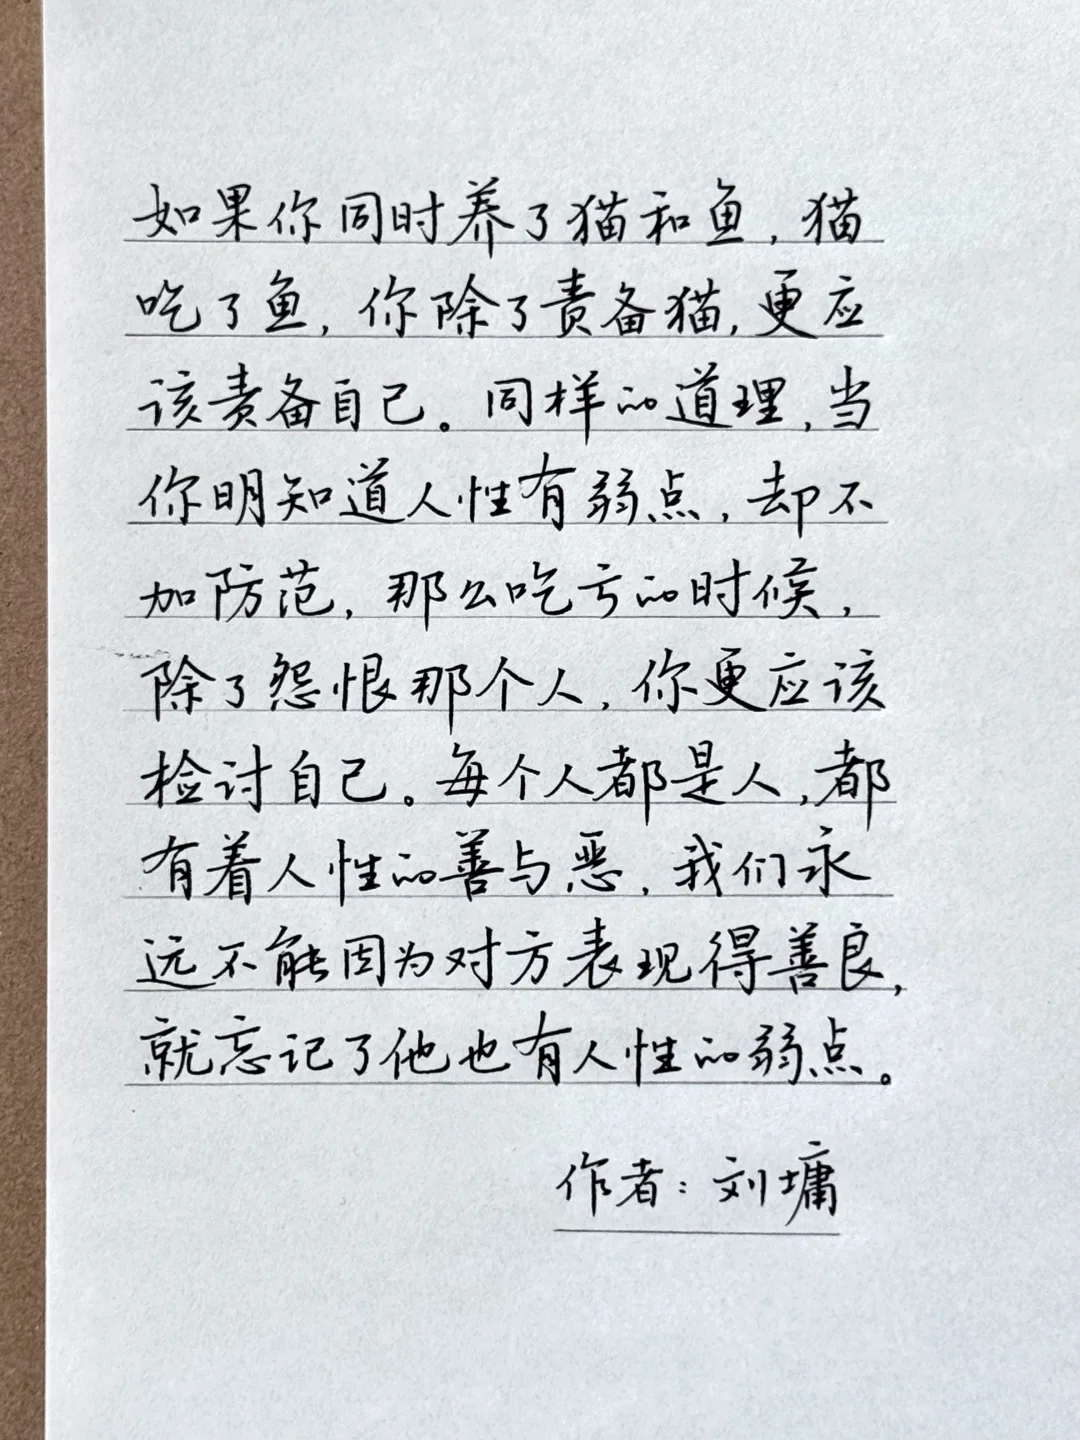 如果你同时养了猫和鱼，猫
吃了鱼，你除了责备猫，更应
该责备自己。同样的道理，当
你明知道人性有弱点，却不
加防范，那么吃亏的时候，
除了怨恨那个人，你更应该
检讨自己。每个人都是人，都
有着人性的善与恶，我们永
远不能因为对方表现得善良，
就忘记了他也有人性的弱点。
作者：刘墉